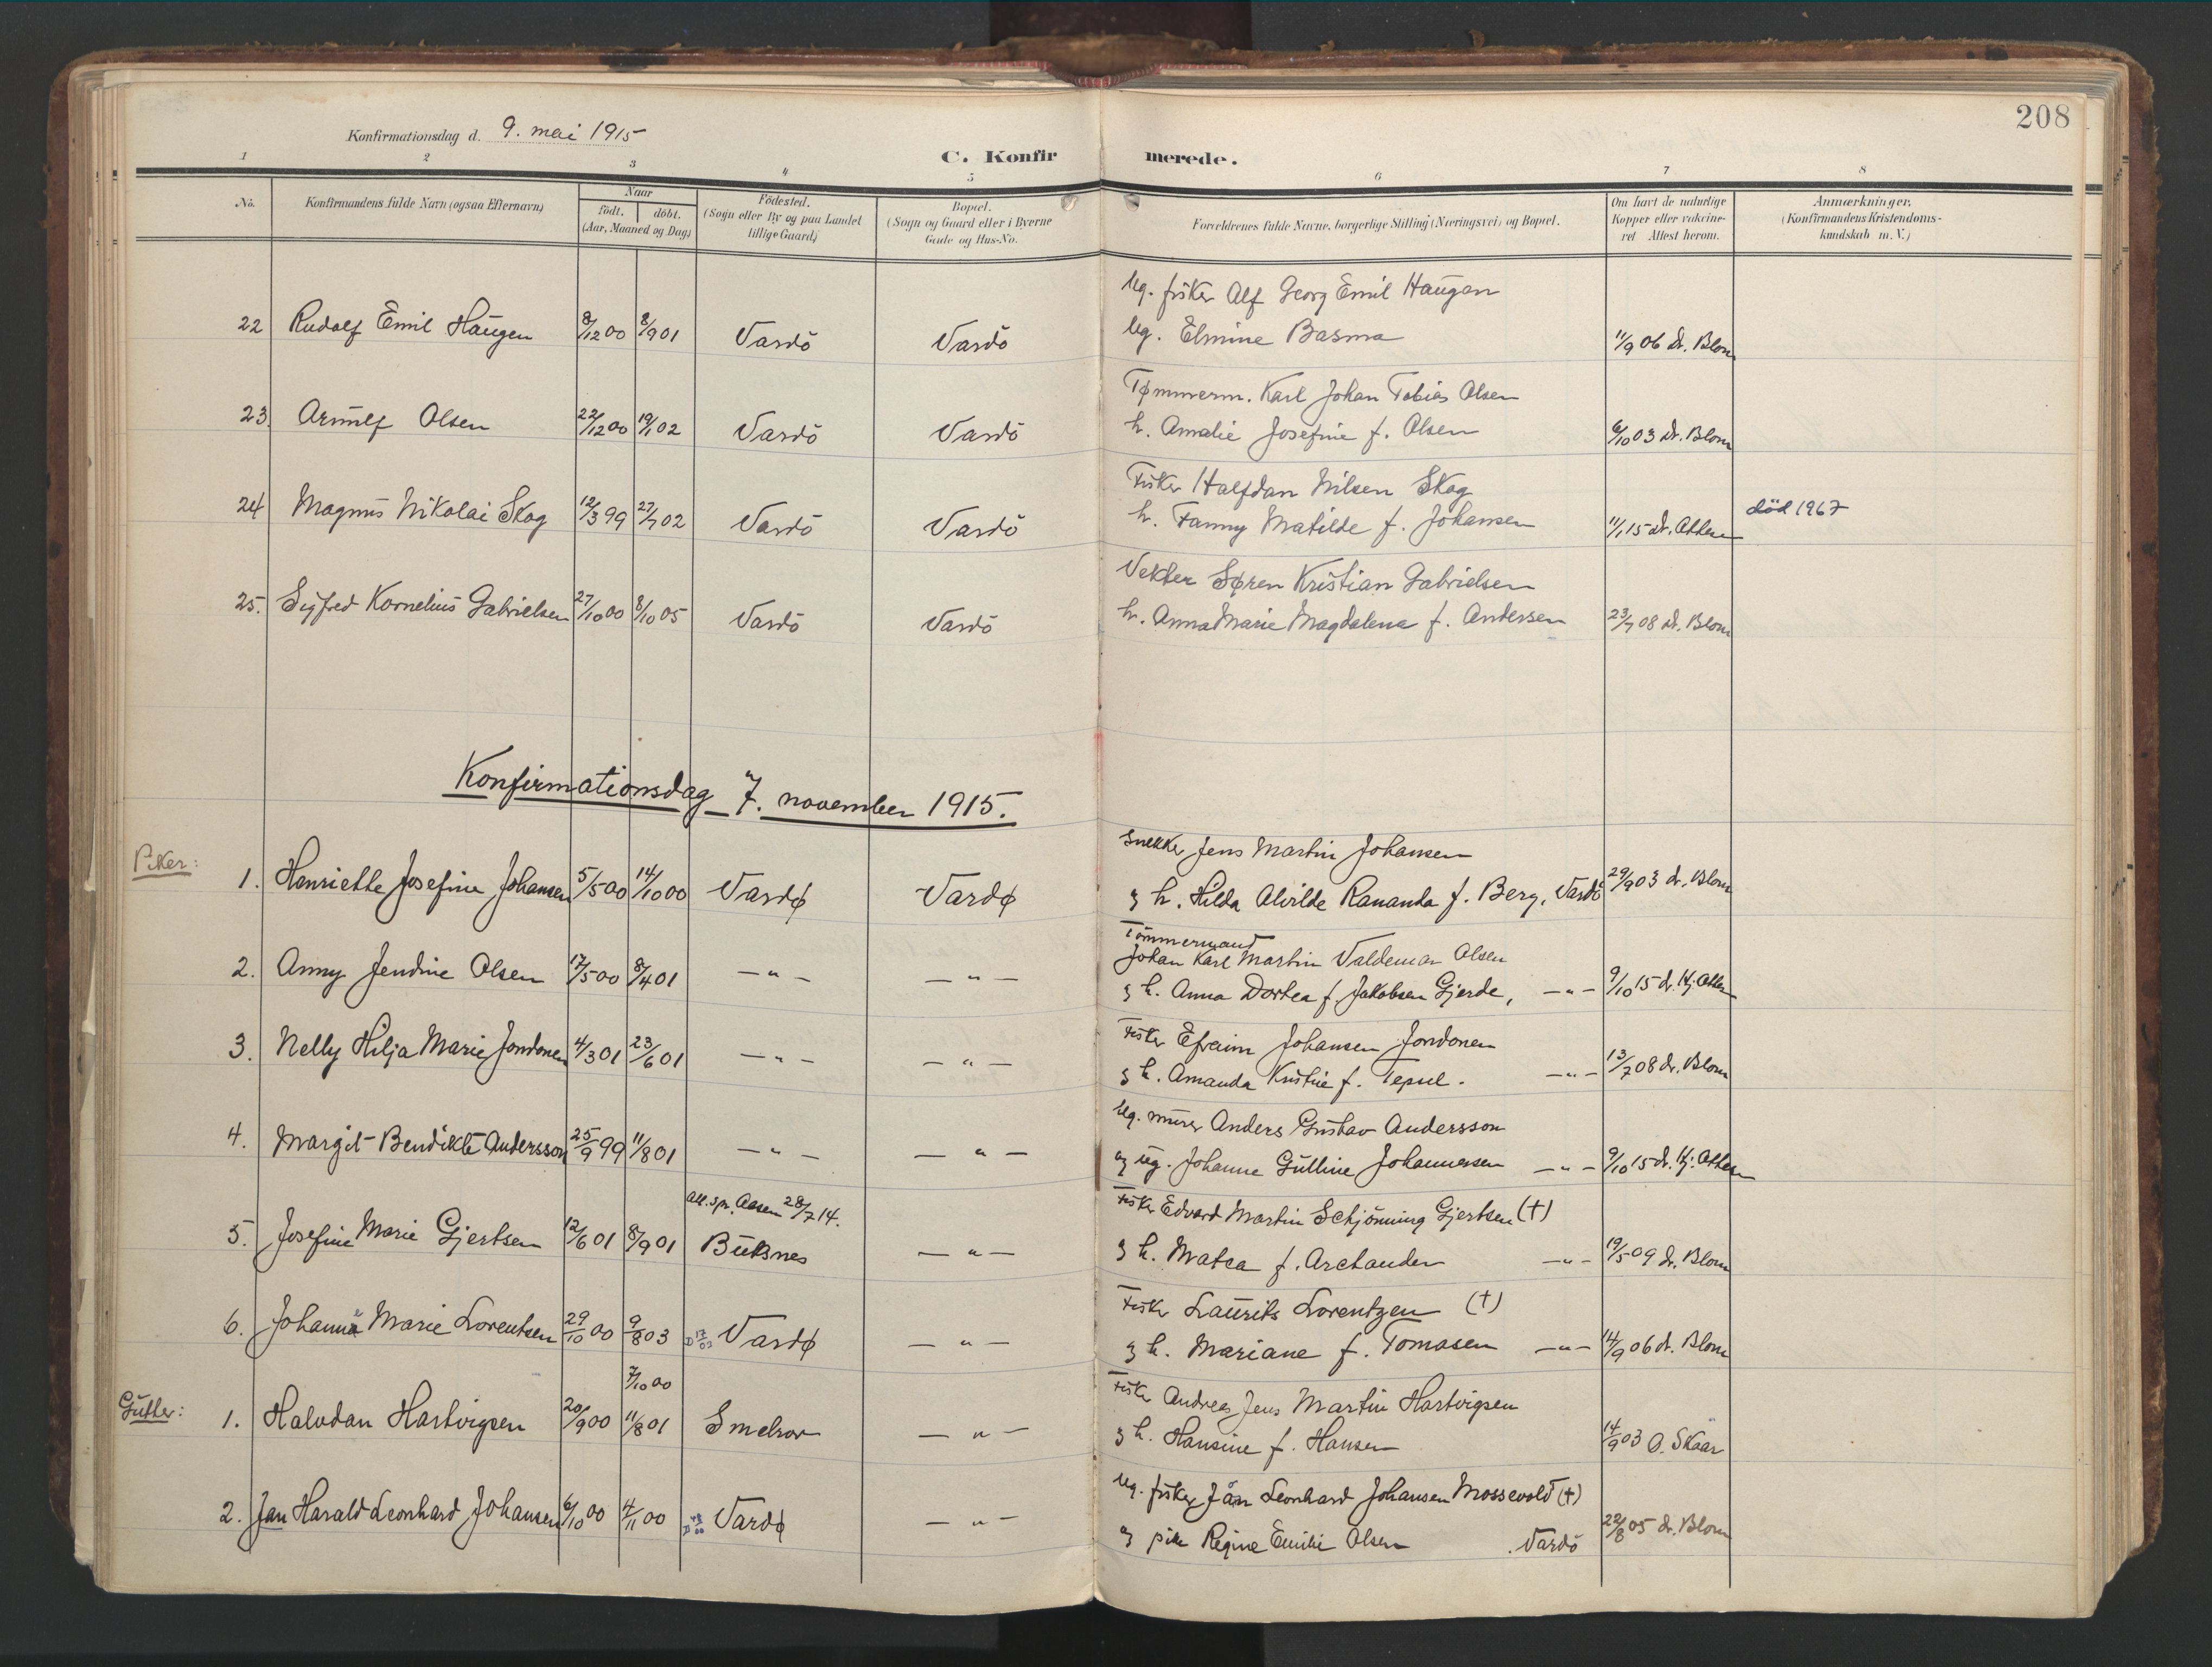 208
Konfirmationsdag d. 9. mai 1915
C. Konfirmerede.
1 2 3 4 5 6 7 8
No. Konfirmandens fulde Navn (ogsaa Efternavn) Naar født. døbt. (Aar, Maaned og Dag) Fødested. (Sogn eller By og paa Landet tillige Gaard) Bopæl. (Sogn og Gaard eller i Byerne Gade og Hus-No. Forældrenes fulde Navne, borgerlige Stilling (Næringsvei) og Bopæl. Om havt de naturlige Kopper eller vakcineret Attest herom. Anmærkninger. (Konfirmandens Kristendomskundskab m. V.)
ug. fisker Alf Georg Emil Haugen
22 Rudolf Emil Haugen 8/12 00 8/9 01 Vardö Vardö ug. Elmine Basma 11/9 06 dr. Blom
Tømmerm. Karl Johan Tobias Olsen
23. Arnulf Olsen 22/12 00 19/1 02 Vardö Vardö h. Amalie Josefine f. Olsen 6/10 03 dr. Blom
Fisker Halfdan Nilsen Skog
24 Magnus Nikolai Skog 12/3 99 27/7 02 Vardö Vardö h. Fanny Matilde f. Johansen 11/1 15 dr. Ottesen död 1967
Vekter Søren Kristian Gabrielsen
25. Sigfred Kornelius Gabrielsen 27/10 00 8/10 05 Vardö Vardö h. Anna Marie Magdalena f. Andersen 23/7 08 dr. Blom
Konfirmationsdag 7. november 1915.
Piker:
Snekker Jens Martin Johansen
1. Henriette Josefine Johansen 5/5 00 14/10 00 Vardø Vardø g h. Hilda Alvilde Rananda f. Berg, Vardö 29/9 03 dr. Blom
Tömmermand
Johan Karl Martin Valdemar Olsen
2. Anny Jendine Olsen 17/5 00 8/4 01 — " — — " — g h. Anna Dortea f. Jakobsen Gjerde, — " — 9/10 15 dr. Hj. Ottesen
Fisker Efraim Johansen Jondonen
3. Nelly Hilja Marie Jondonen 4/3 01 23/6 01 — " — — " — g h. Amanda Kristine f. Tepsel. — " — 13/7 08 dr. Blom
ug. murer Anders Gustav Andersson
4. Margit Bendikte Andersson 25/9 99 11/8 01 — " — — " — og ug. Johanne Gulline Johannesen — " — 9/10 15 dr. Hj. Ottesen
att. spr. Aasen 28/7 14.
Fisker Edvard Martin Schjönning Gjertsen (†)
5. Josefine Marie Gjertsen 12/6 01 8/9 01 Buksnes — " — g h. Matea f. Archander — " — 19/5 09 dr. Blom
Fisker Laurits Lorentzen (†)
6. Johanne Marie Lorentsen 29/10 00 9/8 03 Vardø — " — g h. Mariane f. Tomasen — " — 14/9 06 dr. Blom
7/10 00
Gutter:
Fisker Andreas Jens Martin Hartvigsen
1. Halvdan Hartvigsen 20/9 00 11/8 01 Smelror — " — g h. Hansine f. Hansen 14/9 03 O. Skaar
ug. fisker Jan Leonhard Johansen Mossevold (†)
2. Jan Harald Leonhard Johansen 6/10 00 4/11 00 Vardø — " — g pike Regine Emilie Olsen . Vardö 22/8 05 dr. Blom